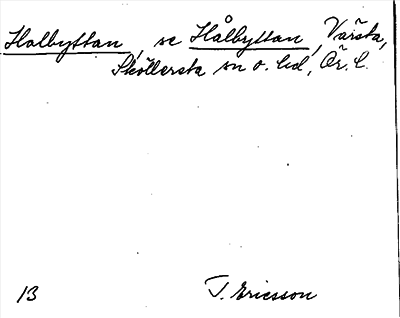 Halbyttan, se Hålbyttan, Värsta,
Sköllersta sn o. hd, Ör. l.
13 T. Ericsson